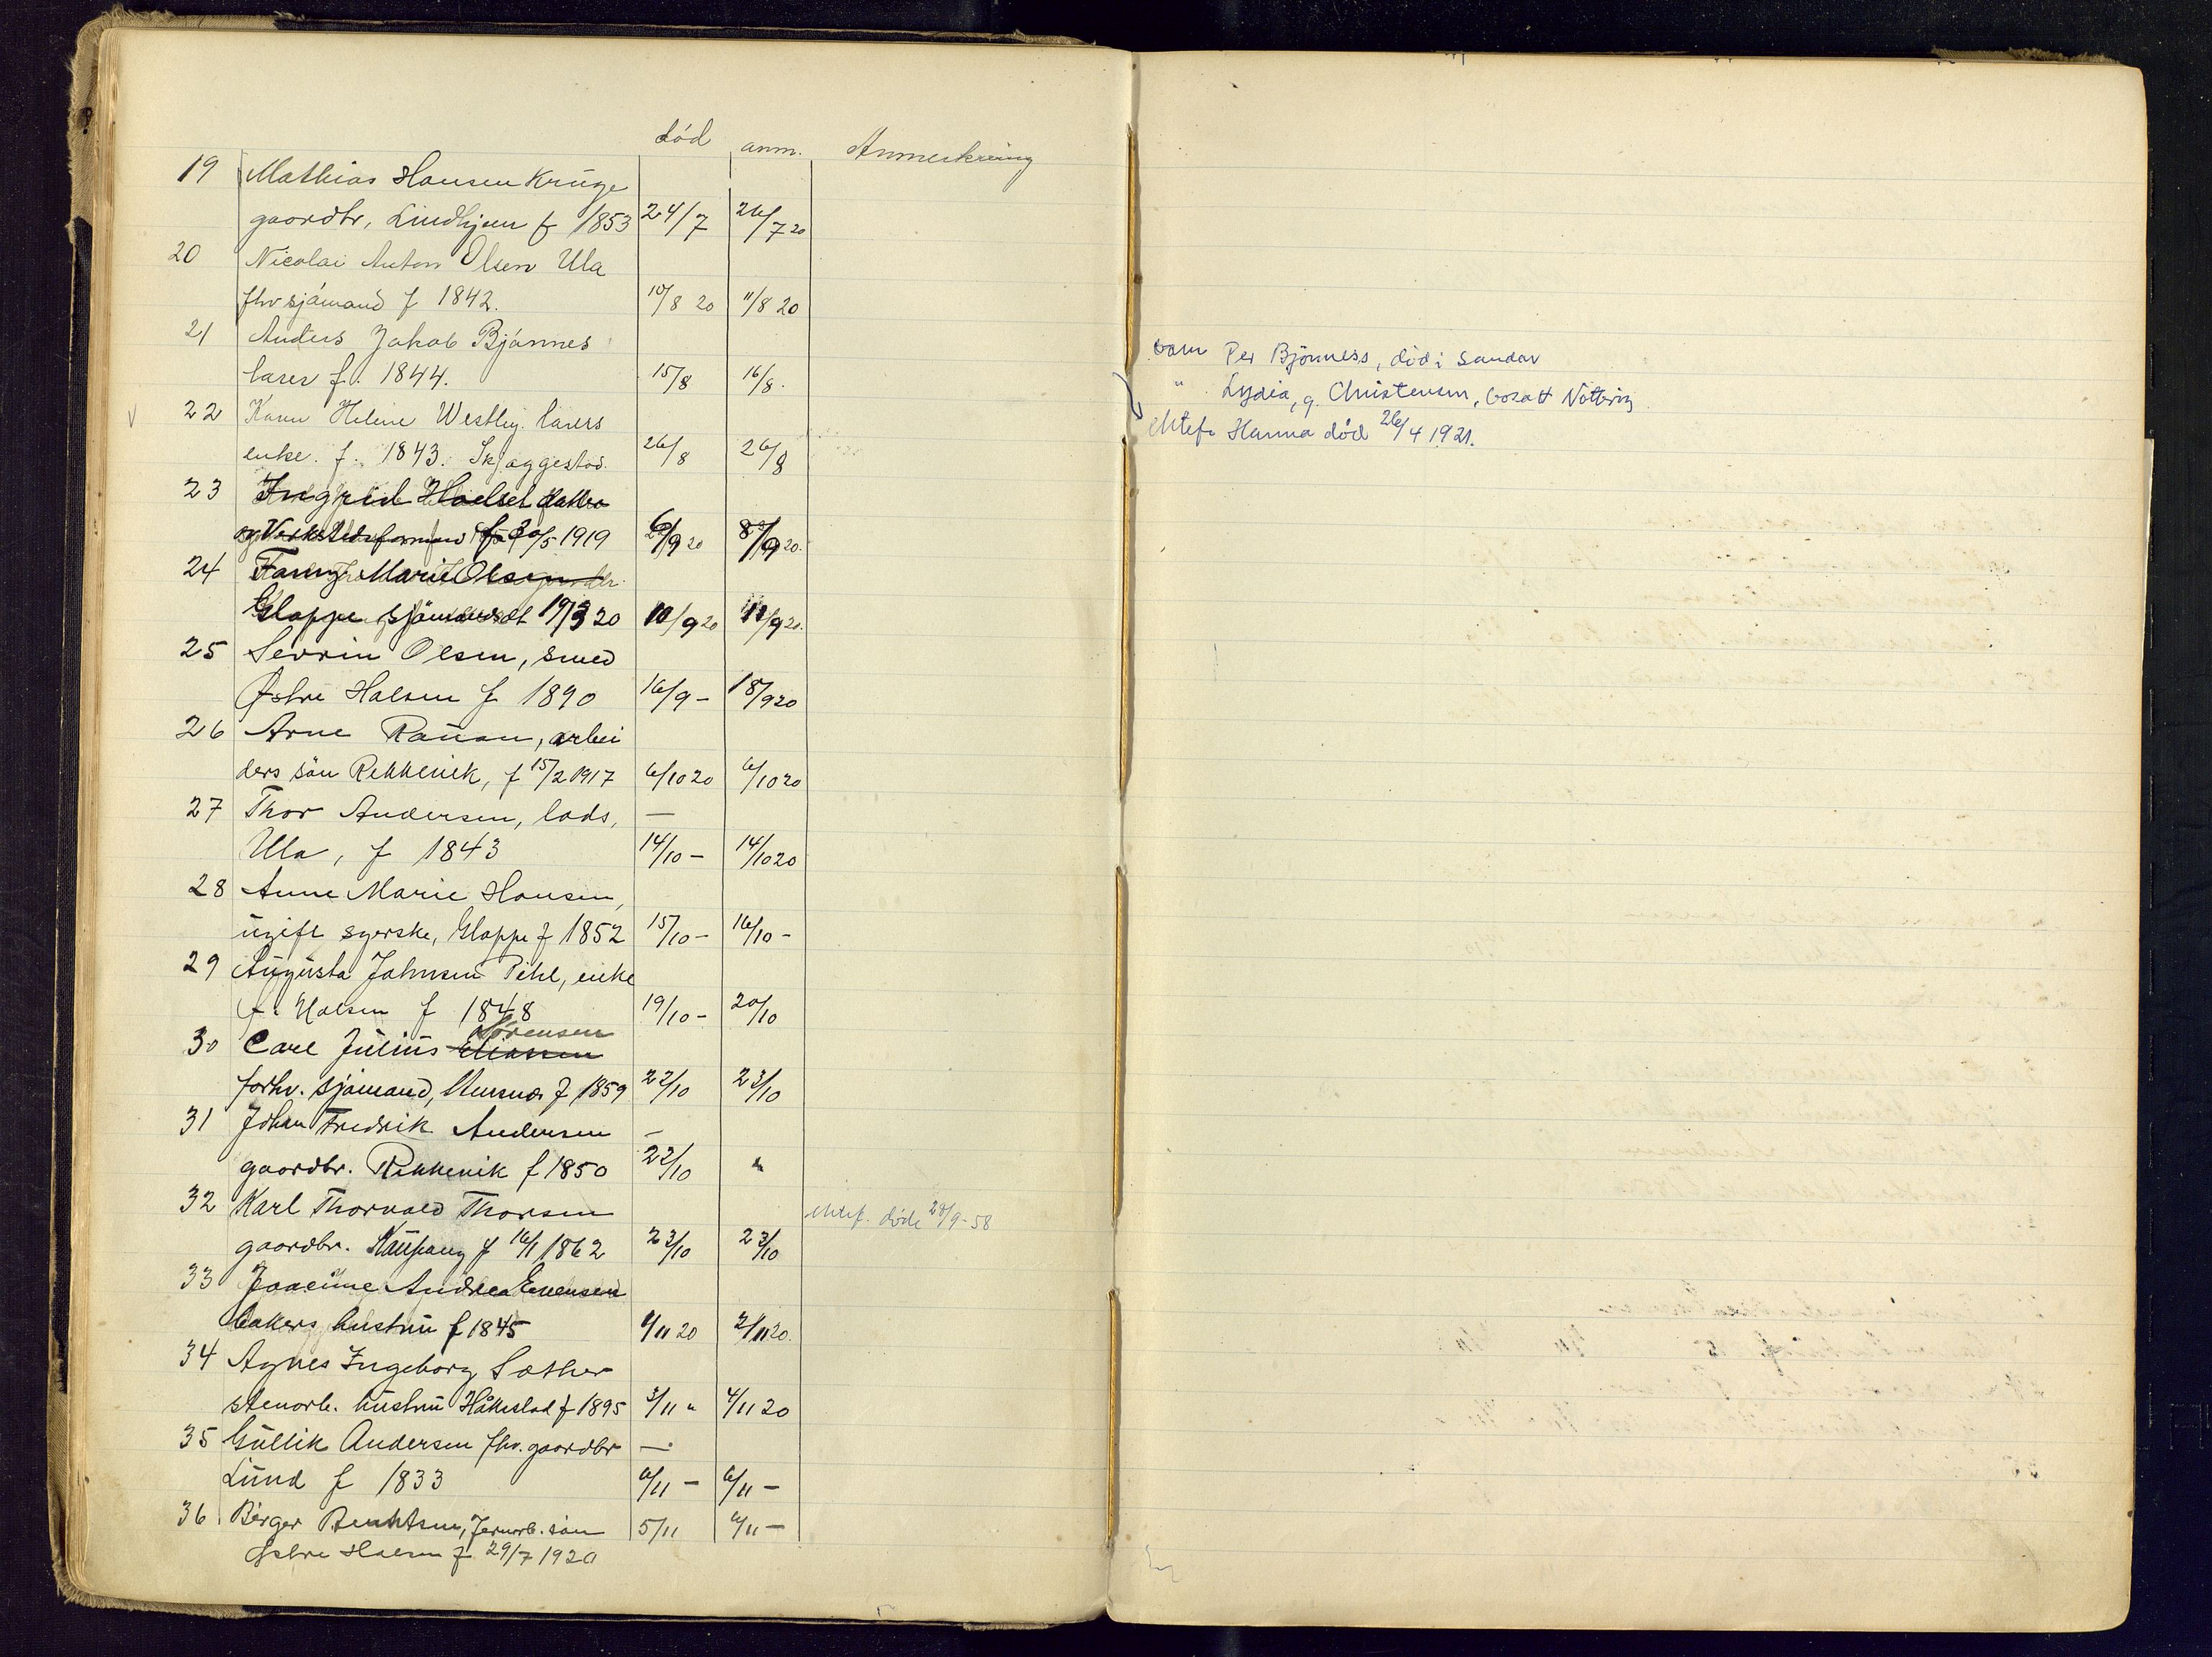 død anm. Anmerkning
19 Mathias Hansen Kruge
gaardbr, Lindhjem f 1853 24/7 26/7 20
20 Nicolai Anton Olsen Ula
fhv sjømand f 1842. 10/8 20 11/8 20
21 Anders Jakob Bjønnes
laser f. 1844. 15/8 16/8.
22 Karen Helene Westby. lasers
enke. f. 1843. Skjaggestad. 26/8 26/8
23 Ingrid Hoelsel datter
av Verkstedsformann f 20/5 1919 6/9 20 8/9 20.
24 Fanny Marie Olsen
Gloppe sjømands dt 19/3 20 10/9 20 11/9 20.
25 Sevrin Olsen, smed
Østre Halsen f 1890 16/9 – 18/9 20
26 Arne Rauan, arbei
ders søn Rekkevik, f 15/2 1917 6/10 20 6/10 20
27 Thor Andersen, lods, —
Ula, f 1843 14/10 – 14/10 20
28 Anne Marie Hansen,
ugift syerske, Gloppe f 1852 15/10 – 16/10 –
29 Augusta Johnsen Pihl, enke
Halsen f 1848 19/10 – 20/10
Sørensen
30 Carl Julius Eliassen
forhv. sjømand, Stensnes f 1859 22/10 23/10
31 Johan Fredrik Andersen —
gaardbr. Rekkevik f 1850 22/10 "
32 Karl Thorvald Thorsen ektef. døde 28/9-58
gaardbr. Kaupang f 16/1 1862 23/10 23/10
33 Joacime Andrea Evensen
bakers hustru f 1845 1/11 20 2/11 20.
34 Agnes Ingeborg Sæther
stenarb. hustru Håkestad f 1895 3/11 " 4/11 20
35 Gullik Andersen fhv. gaardbr —
Lund f 1833 6/11 – 6/11 –
36 Birger Berntsen, Jernarb. søn 5/11 6/11 –
Østre Halsen f 29/7 1920
barn Per Bjønness, død i Sandar
" Lydia, g. Christensen, bosatt Nøtterøy
ektef. Hanna død 26/4 1921.